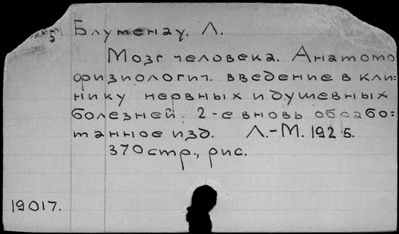 Блуменау. Л.
Мозг человека. Анатомо
физиологич. введение в кли-
нику нервных и душевных
болезней. 2-е вновь обрабо-
танное изд. Л.-М. 1925.
370 стр., рис.
19017.